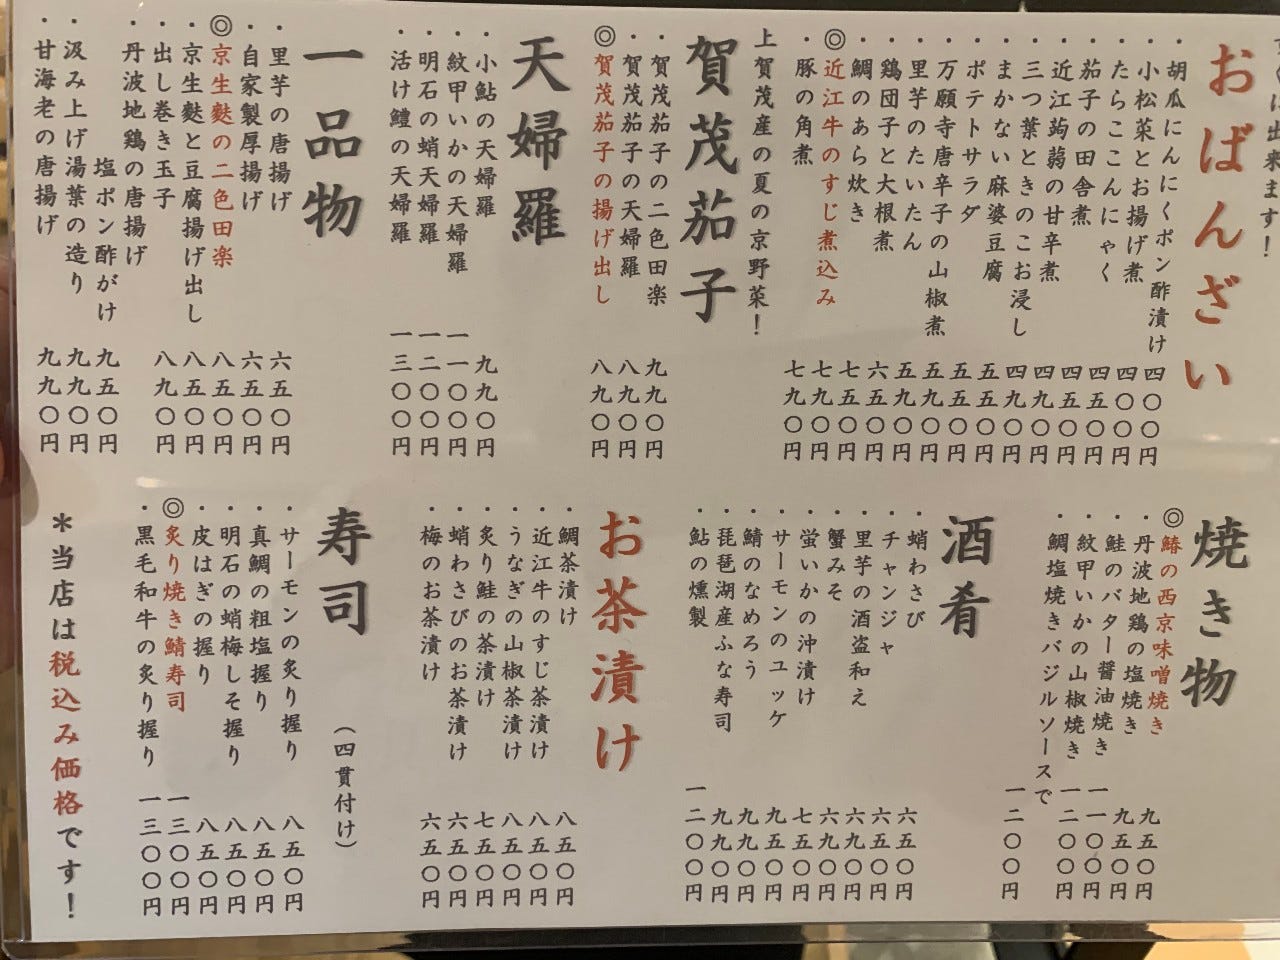 すぐに出来ます！
おばんざい
・胡瓜にんにくポン酢漬け 四〇〇円
・小松菜とお揚げ煮 四〇〇円
・たらここんにゃく 四五〇円
・茄子の田舎煮 四五〇円
・近江蒟蒻の甘辛煮 四九〇円
・三つ葉ときのこお浸し 四九〇円
・まかない麻婆豆腐 五五〇円
・ポテトサラダ 五五〇円
・万願寺唐辛子の山椒煮 五五〇円
・里芋のたいたん 五九〇円
・鶏団子と大根煮 六五〇円
・鯛のあら炊き 七五〇円
◎近江牛のすじ煮込み 七九〇円
・豚の角煮 七九〇円
上賀茂産の夏の京野菜！
賀茂茄子
・賀茂茄子の二色田楽 九九〇円
・賀茂茄子の天婦羅 八九〇円
◎賀茂茄子の揚げ出し 八九〇円
天婦羅
・小鮎の天婦羅 九九〇円
・紋甲いかの天婦羅 一一〇〇円
・明石の蛸天婦羅 一二〇〇円
・活け鱧の天婦羅 一三〇〇円
一品物
・里芋の唐揚げ 六五〇円
・自家製厚揚げ 六五〇円
◎京生麩の二色田楽 八五〇円
・京生麩と豆腐揚げ出し 八五〇円
・出し巻き玉子 八九〇円
・丹波地鶏の唐揚げ
塩ポン酢がけ 九五〇円
・汲み上げ湯葉の造り 九九〇円
・甘海老の唐揚げ 九九〇円
焼き物
◎鰆の西京味噌焼き 九五〇円
・丹波地鶏の塩焼き 九五〇円
・鮭のバター醤油焼き 一一〇〇円
・紋甲いかの山椒焼き 一二〇〇円
・鯛塩焼きバジルソースで 一二〇〇円
酒肴
・蛸わさび 六五〇円
・チャンジャ 六五〇円
・里芋の酒盗和え 六九〇円
・蟹みそ 六九〇円
・蛍いかの沖漬け 七五〇円
・サーモンのユッケ 九五〇円
・鯖のなめろう 九九〇円
・琵琶湖産ふな寿司 九九〇円
・鮎の燻製 一二〇〇円
お茶漬け
・鯛茶漬け 八五〇円
・近江牛のすじ茶漬け 八五〇円
・うなぎの山椒茶漬け 八五〇円
・炙り鮭の茶漬け 七五〇円
・蛸わさびのお茶漬け 六五〇円
・梅のお茶漬け 六五〇円
寿司 （四貫付け）
・サーモンの炙り握り 八五〇円
・真鯛の粗塩握り 八五〇円
・明石の蛸梅しそ握り 八五〇円
・皮はぎの握り 八五〇円
◎炙り焼き鯖寿司 一三〇〇円
・黒毛和牛の炙り握り 一三〇〇円
＊当店は税込み価格です！